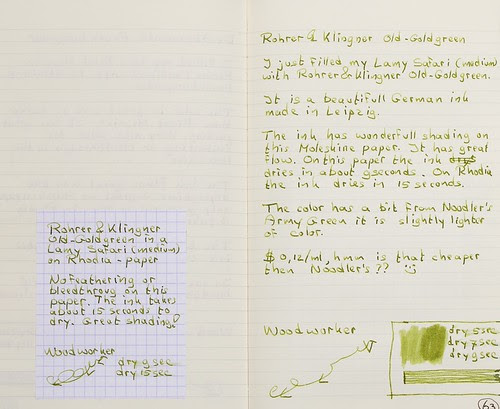 Rohrer & Klingner
Old-Goldgreen in a
Lamy Safari (medium)
on Rhodia - paper
No feathering or
bleedthroug on this
paper. The ink takes
about 15 seconds to
dry. Great shading!
Woodworker
dry 9 sec
dry 15 sec
Rohrer & Klingner Old-Goldgreen
I just filled my Lamy Safari (medium)
with Rohrer & Klingner Old-Goldgreen.
It is a beautifull German ink
made in Leipzig.
The ink has wonderfull shading on
this Moleskine paper. It has great
flow. On this paper the ink
dries in about 9 seconds. On Rhodia
the ink dries in 15 seconds.
The color has a bit from Noodler's
Army Green it is slightly lighter
of color.
$ 0,12/ml, hmm is that cheaper
then Noodler's ??
Woodworker
dry 5 sec
dry 7 sec
dry 9 sec
63